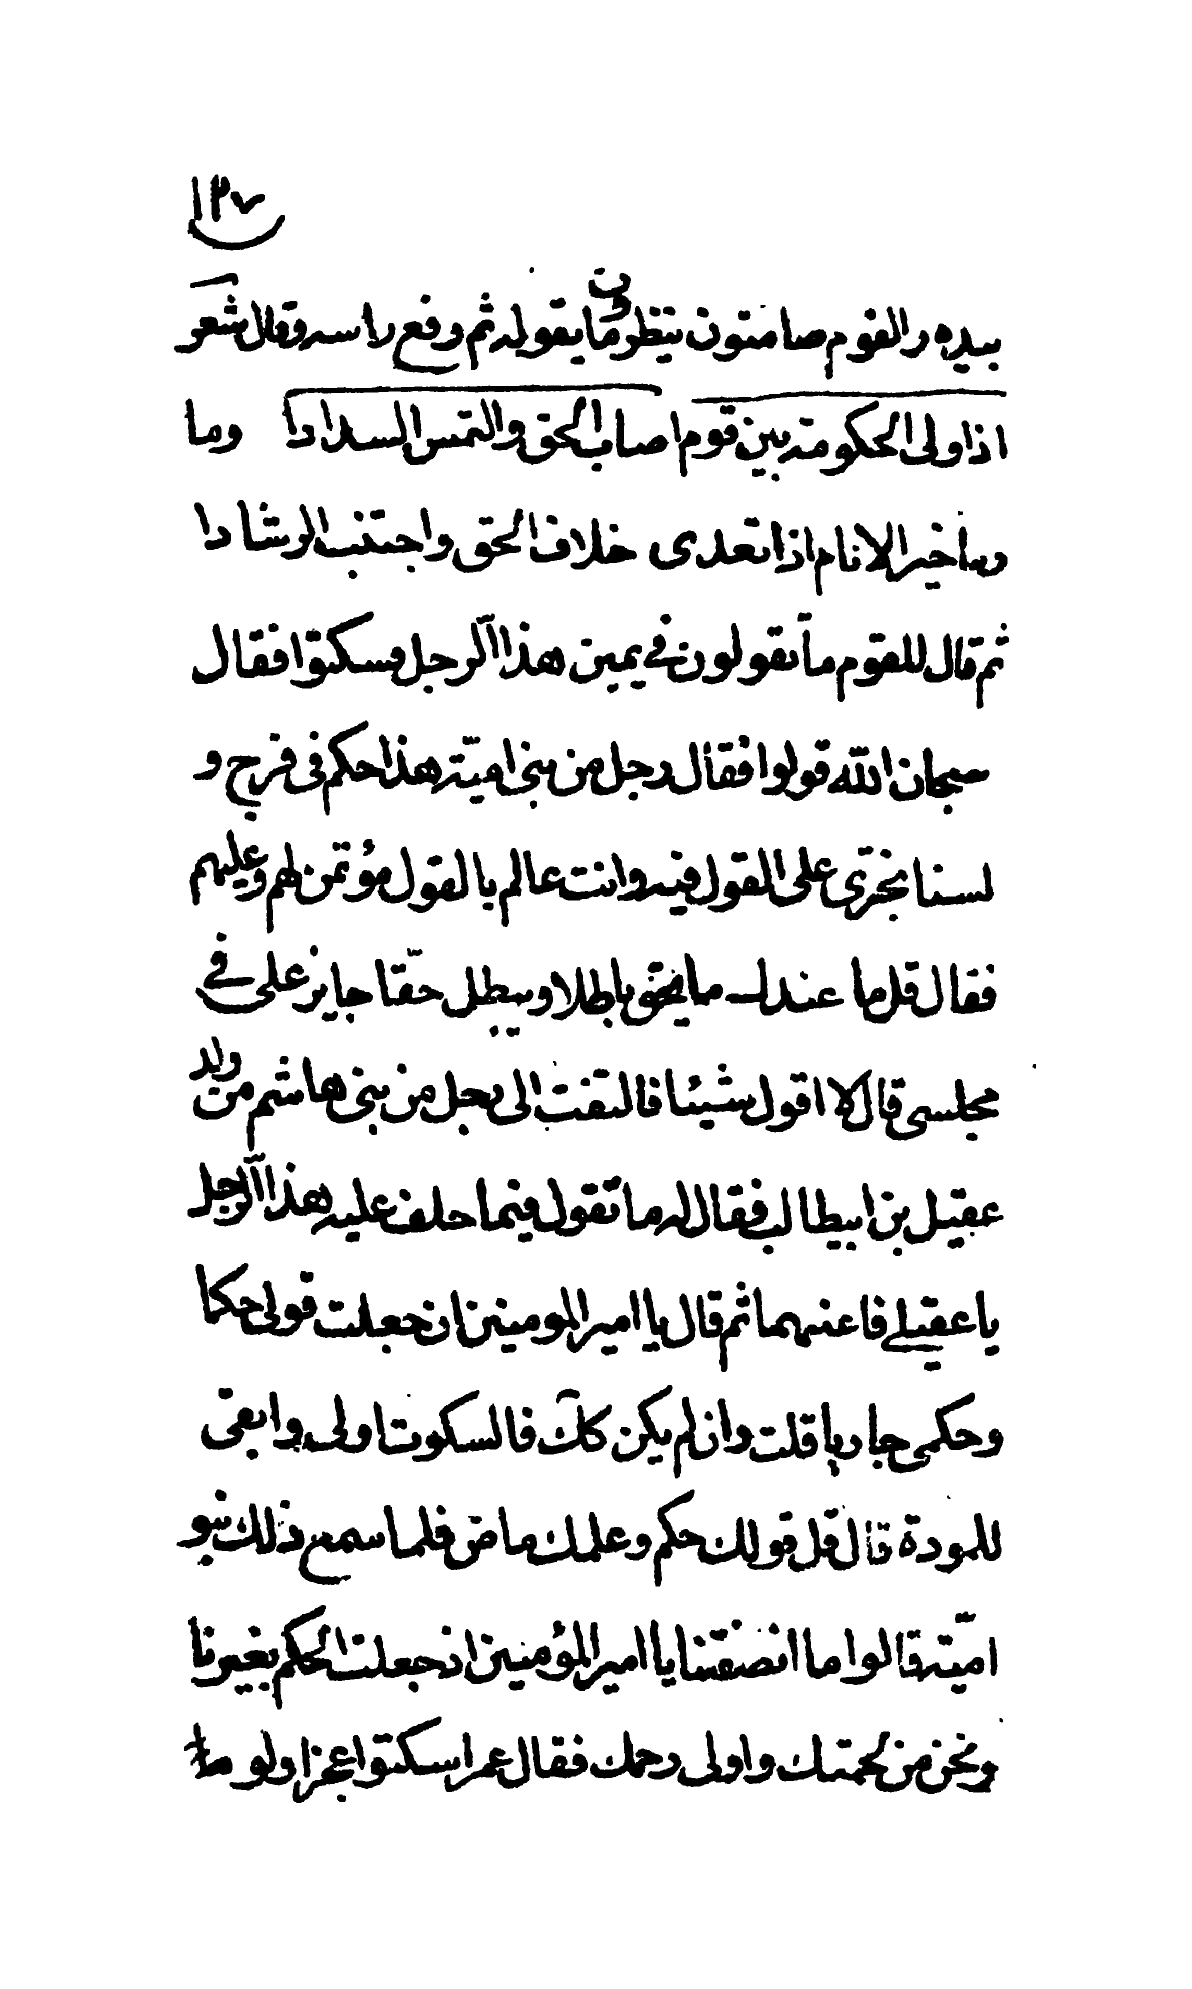 ١٣٧
بيده والقوم صامتون ينتظرون ما يقوله ثم رفع راسه وقال شعر
اذا ولى الحكومة بين قوم اصاب الحق والتمس السدادا وما
وما خير الانام اذا تعدى خلاف الحق واجتنب الرشادا
ثم قال للقوم ما تقولون في يمين هذا الرجل فسكتوا فقال
سبحان الله قولوا فقال رجل من بني امية هذا حكم في فرج و
لسنا نجترى على القول فيه وانت عالم بالقول مؤتمن لهم وعليهم
فقال قل ما عندك ما يحق باطلا ويبطل حقا جايز على في
مجلسي قال لا اقول شيئا فالتفت الى رجل من بني هاشم من ولد
عقيل بن ابيطالب فقال له ما تقول فيما حلف عليه هذا الرجل
يا عقيلي فاغتنمها ثم قال يا امير المومنين ان جعلت قولى حكما
وحكمي جاريا قلت وان لم يكن كك فالسكوت اولى وابقى
للمودة قال قل قولك حكم وعلمك ماض فلما سمع ذلك بنو
امية قالوا ما انصفتنا يا امير المؤمنين اذ جعلت الحكم بغيرنا
ونحن من لحمتك واولى رحمك فقال عمر اسكتوا عجزا ولوما